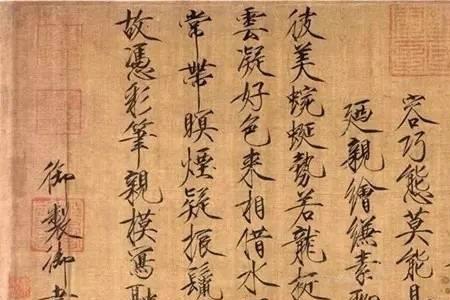 容巧態莫能具
廼親繪縑素
彼美蜿蜒勢若龍
雲凝好色來相借水
常帶瞑煙疑振鬣
故憑彩筆親模寫
御製御